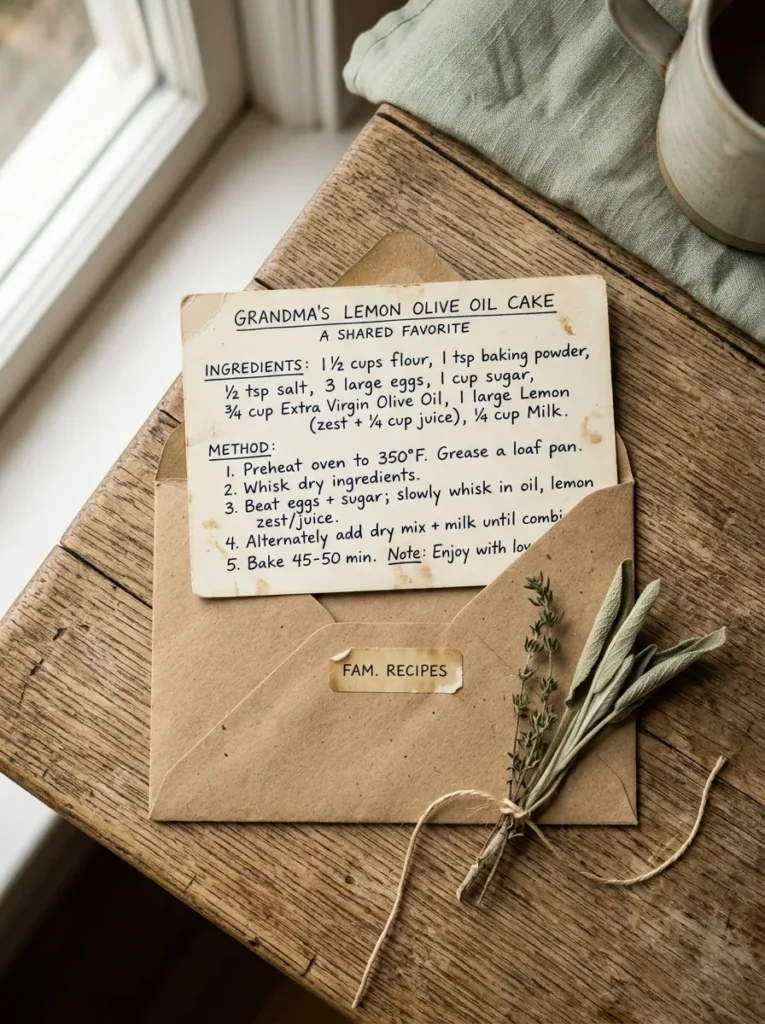 GRANDMA'S LEMON OLIVE OIL CAKE
A SHARED FAVORITE
INGREDIENTS: 1 ½ cups flour, 1 tsp baking powder,
½ tsp salt, 3 large eggs, 1 cup sugar,
¾ cup Extra Virgin Olive Oil, 1 large Lemon
(zest + ¼ cup juice), ¼ cup Milk.
METHOD:
1. Preheat oven to 350°F. Grease a loaf pan.
2. Whisk dry ingredients.
3. Beat eggs + sugar; slowly whisk in oil, lemon
zest/juice.
4. Alternately add dry mix + milk until
5. Bake 45-50 min. Note: Enjoy with
FAM. RECIPES